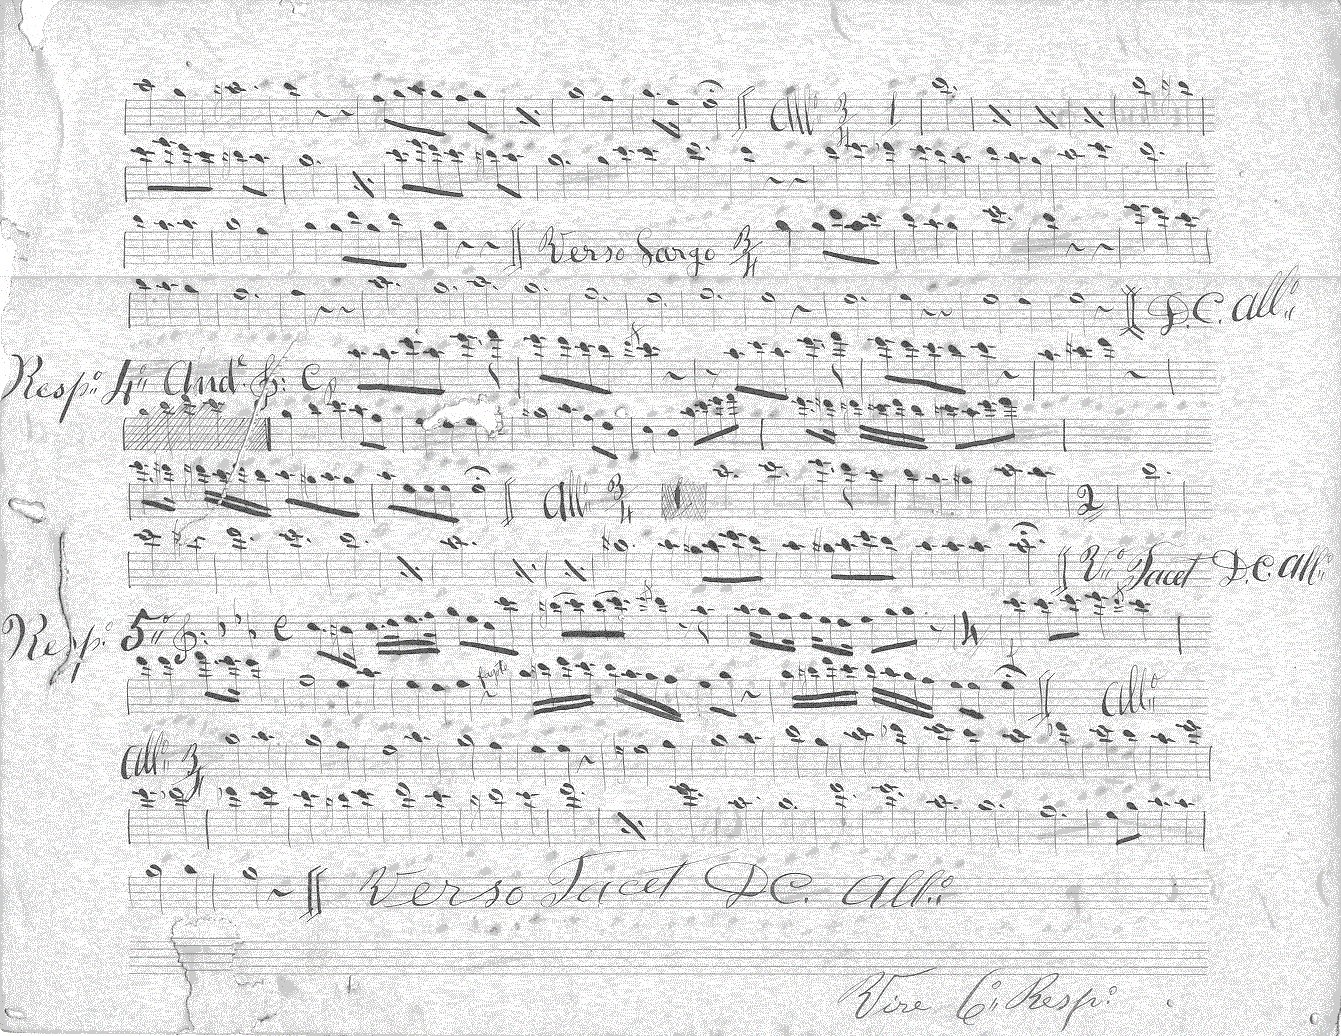 All.º 3/4 1
Verso Largo 3/4
D.C. All.º
Resp.º 4.º And.e C
All.º 3/4 1
2
V.º Tacet D.C. All.º
Resp.º 5.º C
4
All.º
All.º 3/4
Verso Tacet DC. All.º
Vire 6.º Resp.º